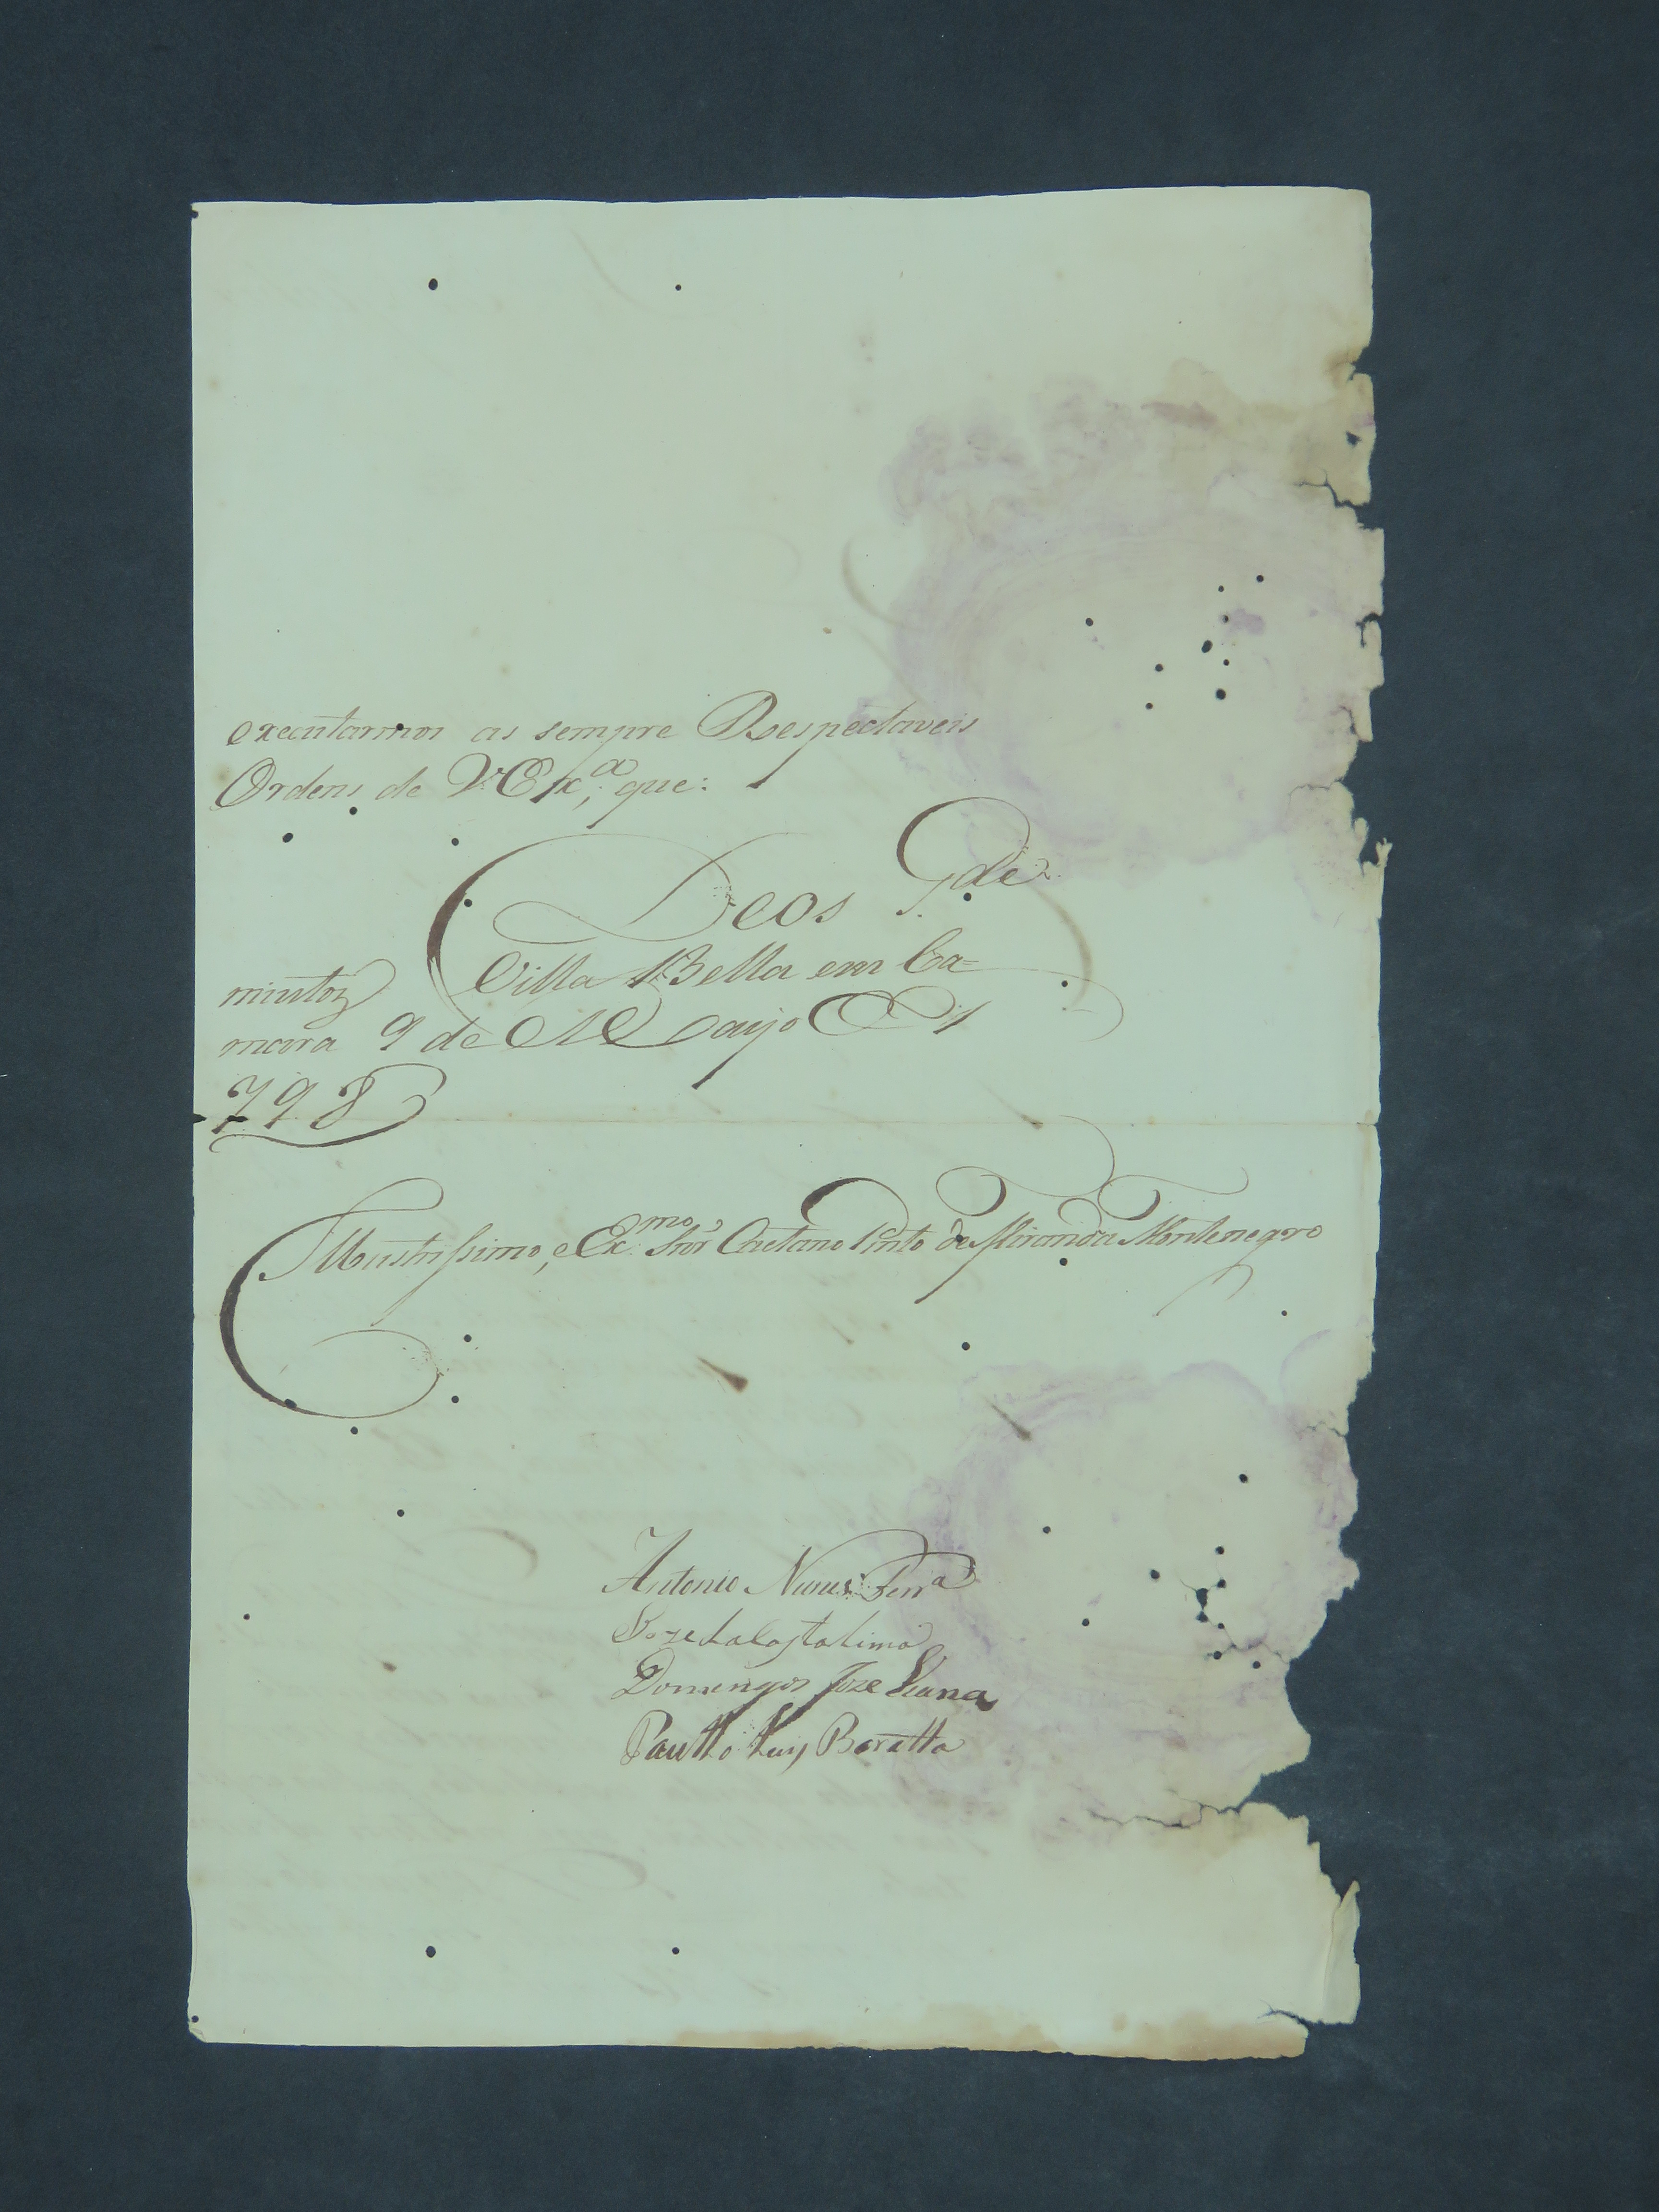 executarmos as sempre Respectaveis
Ordens de V. Exª, que:
Deos Gde
mintoz Villa Bella em Ca=
mara 9 de Mayo de 1
798
Illustrissimo, e Exmo Snor Caetano Pinto de Miranda Montenegro
Antonio Nunes Ferrª
Joze da Costa Lima
Domingos Joze Viana
Paullo Luis Baratta